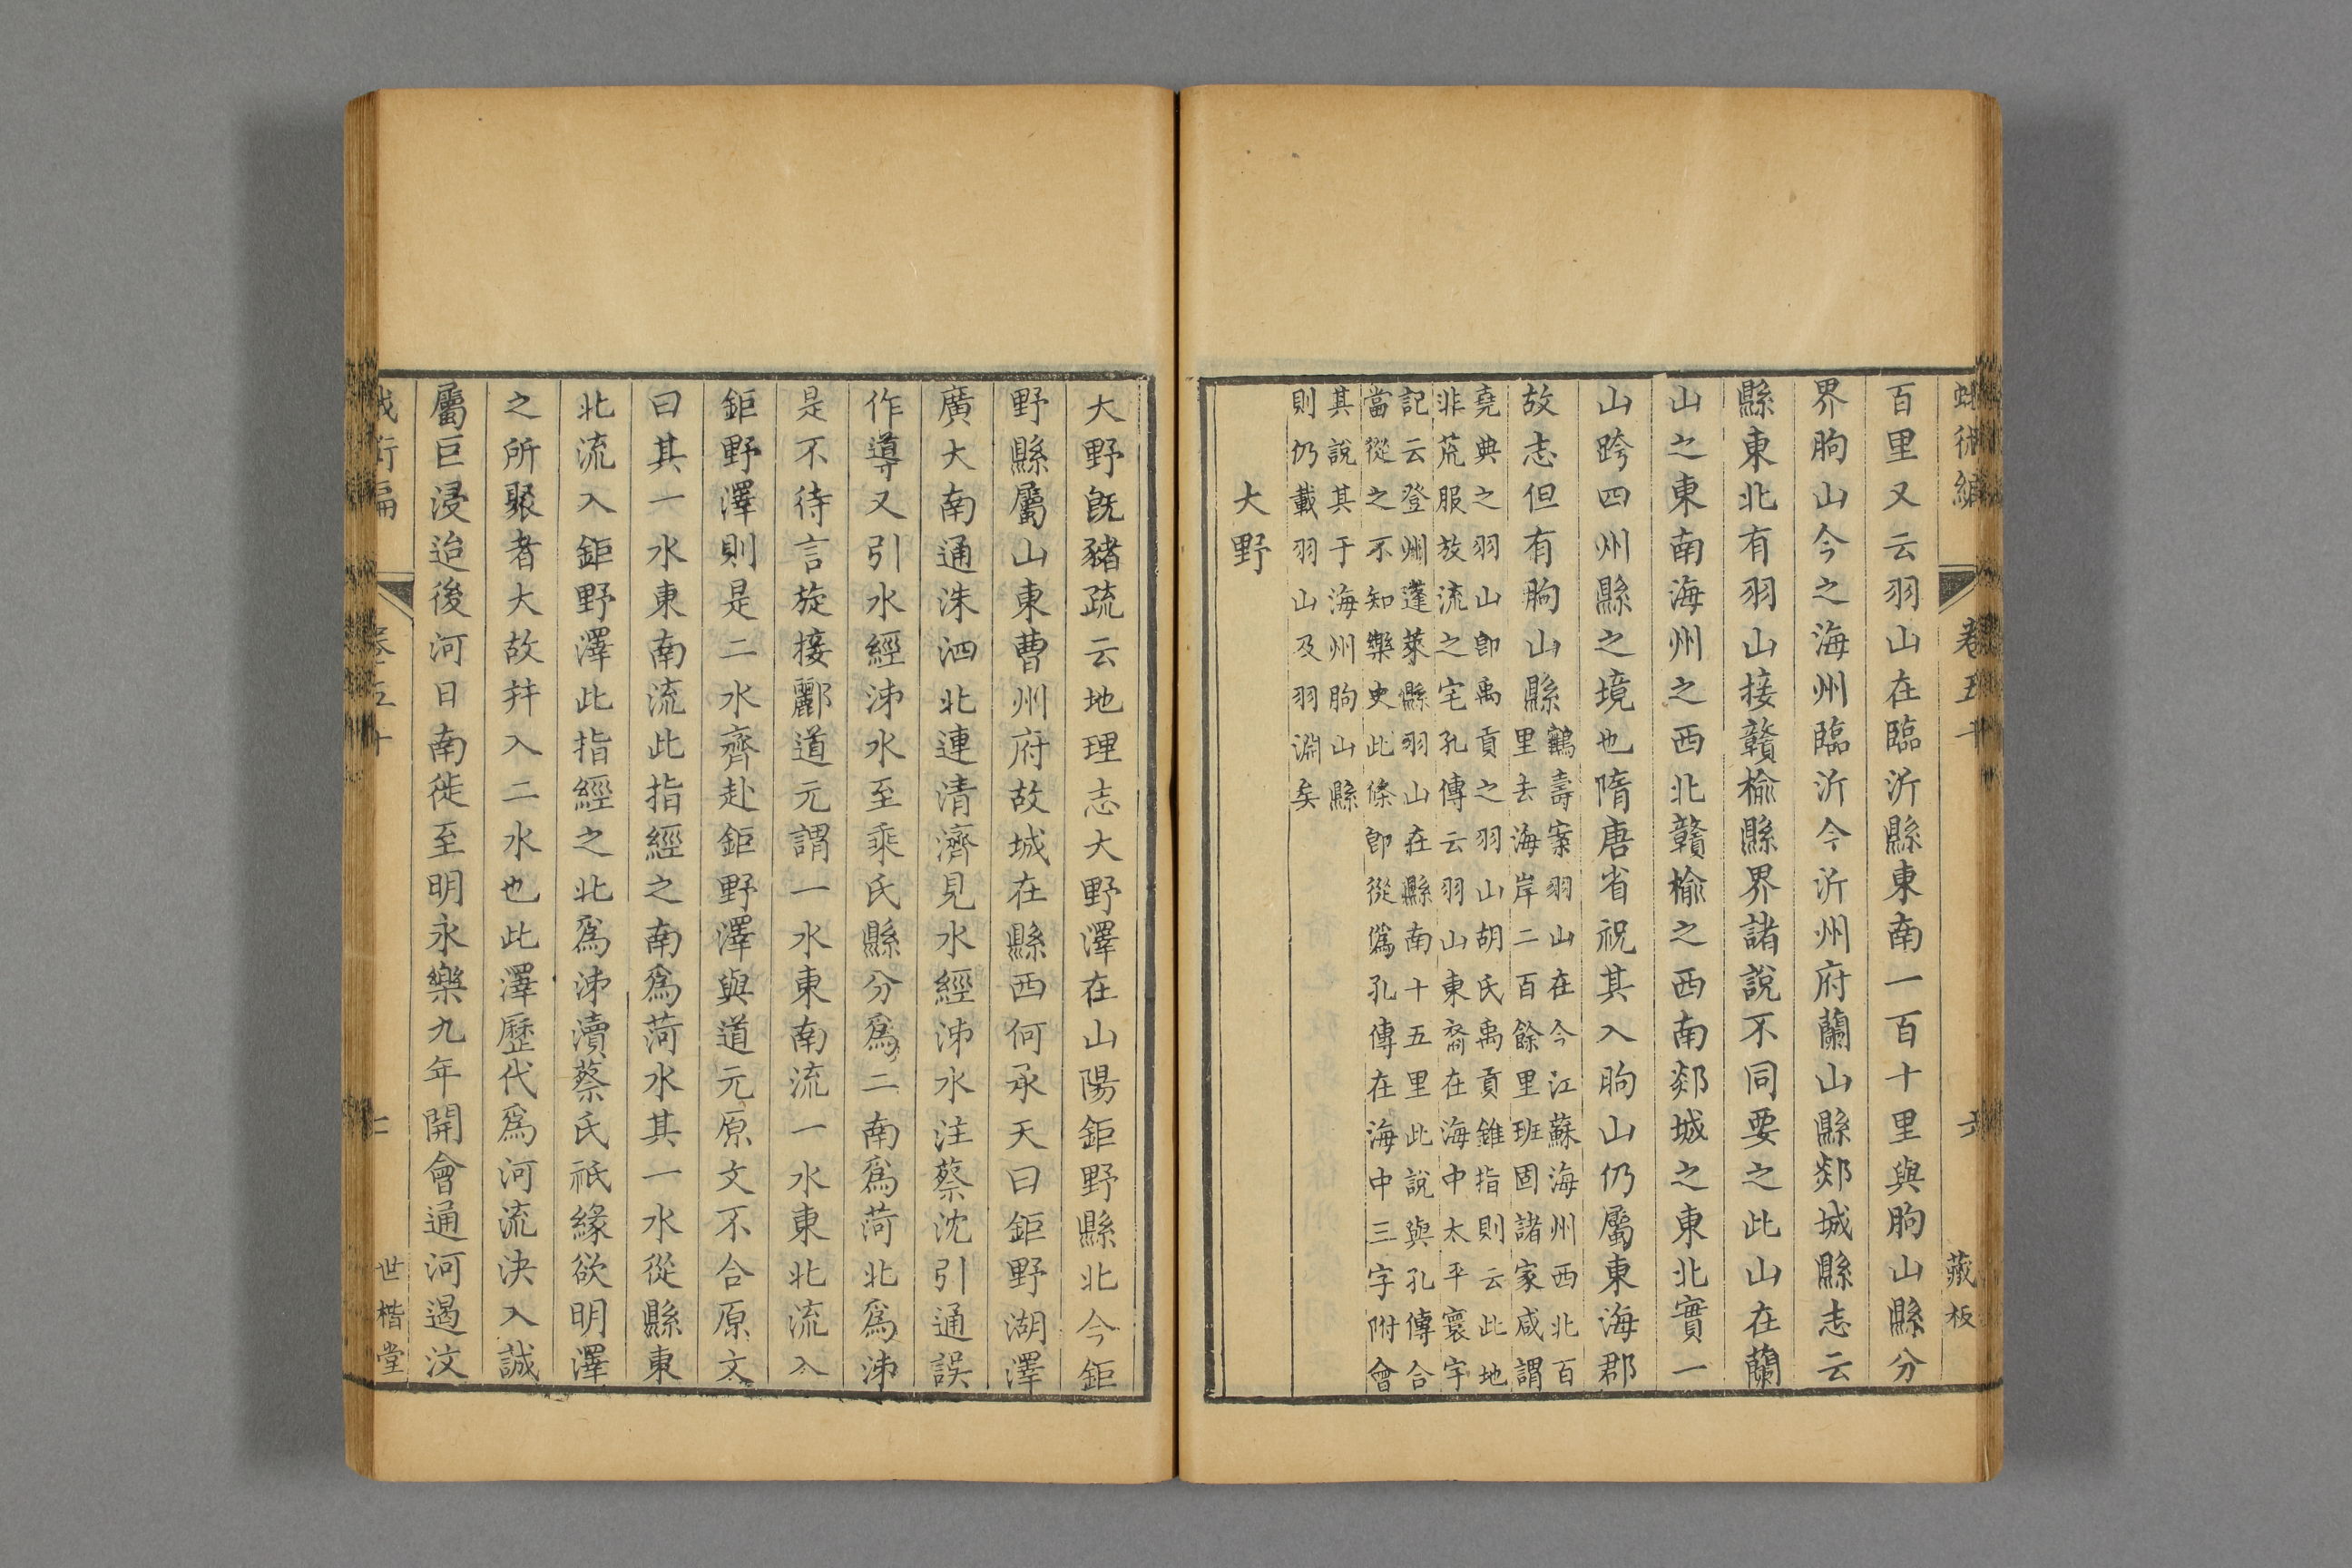 蛾術編 卷五十 六 藏板
百里又云羽山在臨沂縣東南一百十里與朐山縣分
界朐山今之海州臨沂今沂州府蘭山縣郯城縣志云
縣東北有羽山接贛榆縣界諸說不同要之此山在蘭
山之東南海州之西北贛榆之西南郯城之東北實一
山跨四州縣之境也隋唐省祝其入朐山仍屬東海郡
故志但有朐山縣
鶴壽案羽山在今江蘇海州西北百
里去海岸二百餘里班固諸家咸謂
堯典之羽山卽禹貢之羽山胡氏禹貢錐指則云此地
非荒服放流之宅孔傳云羽山東裔在海中太平寰宇
記云登州蓬萊縣羽山在縣南十五里此說與孔傳合
當從之不知樂史此條卽從僞孔傳在海中三字附會
其說其于海州朐山縣
則仍載羽山及羽淵矣
大野
大野旣豬疏云地理志大野澤在山陽鉅野縣北今鉅
野縣屬山東曹州府故城在縣西何承天曰鉅野湖澤
廣大南通洙泗北連清濟見水經泲水注蔡沈引通誤
作導又引水經泲水至乘氏縣分爲二南爲菏北爲泲
是不待言旋接酈道元謂一水東南流一水東北流入
鉅野澤則是二水齊赴鉅野澤與道元原文不合原文
曰其一水東南流此指經之南爲菏水其一水從縣東
北流入鉅野澤此指經之北爲泲瀆蔡氏祇緣欲明澤
之所聚者大故幷入二水也此澤歷代爲河流決入誠
屬巨浸迨後河日南徙至明永樂九年開會通河遏汶
卷五十 七 世楷堂